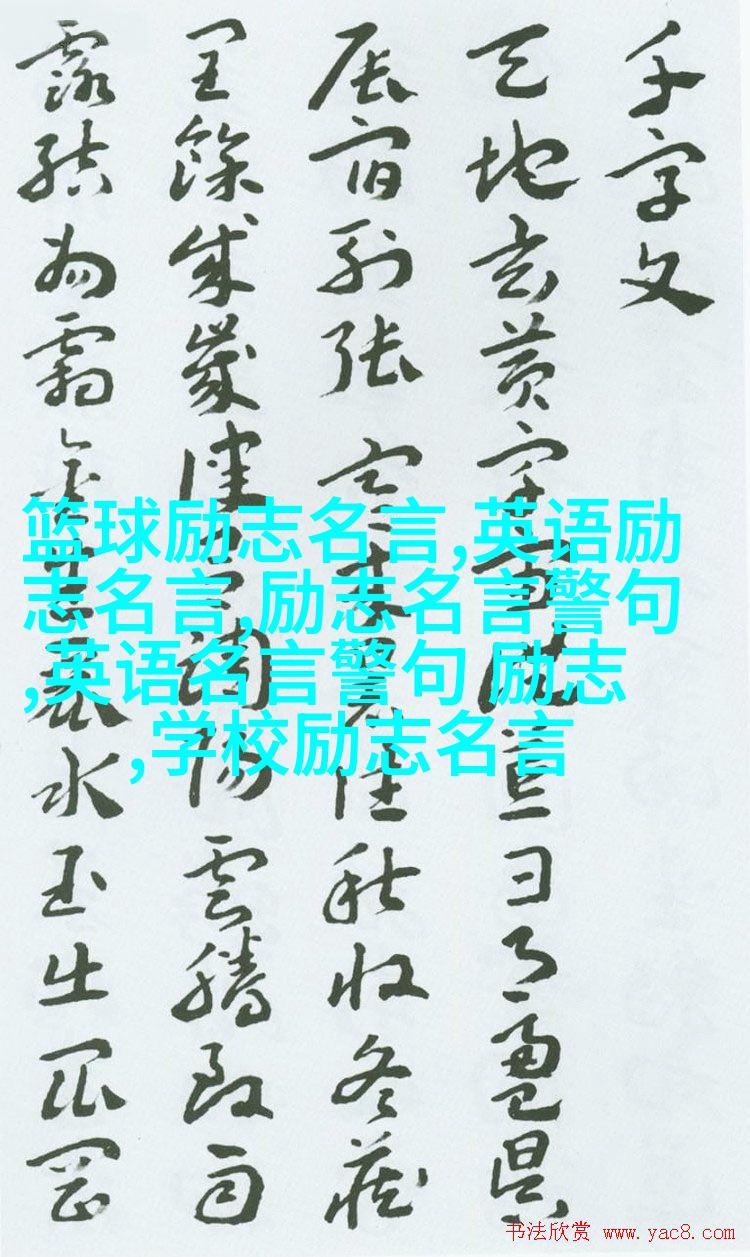 千字文
天地玄黄宇宙洪荒日月盈昃
辰宿列張寒来暑往秋收冬藏
閏餘成歲律吕調陽雲騰致雨
露結為霜金生麗水玉出崑岡
篮球励志名言,英语励
志名言,励志名言警句
,英语名言警句 励志
,学校励志名言
书法欣赏 www.yac8.com